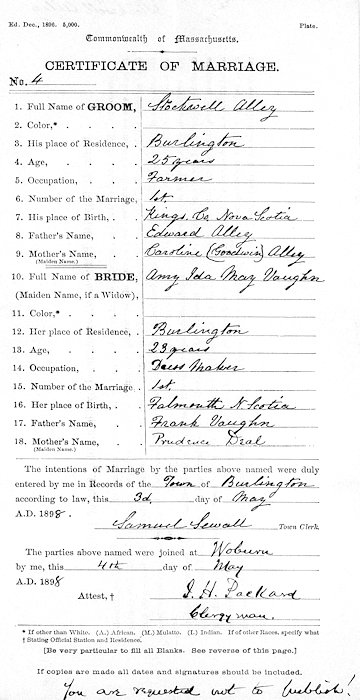 Ed. Dec., 1896. 5,000. Plate.
Commonwealth of Massachusetts.
CERTIFICATE OF MARRIAGE.
No. 4
1. Full Name of GROOM, Stockwell Alley
2. Color,*
3. His place of Residence, Burlington
4. Age, 25 years
5. Occupation, Farmer
6. Number of the Marriage, 1st.
7. His place of Birth, Kings Co Nova Scotia
8. Father's Name, Edward Alley
9. Mother's Name, Caroline (Goodwin) Alley
(Maiden Name.)
10. Full Name of BRIDE, Amy Ida May Vaughn
(Maiden Name, if a Widow),
11. Color,*
12. Her place of Residence, Burlington
13. Age, 23 years
14. Occupation, Dress Maker
15. Number of the Marriage, 1st.
16. Her place of Birth, Falmouth N. Scotia
17. Father's Name, Frank Vaughn
18. Mother's Name, Prudence Deal
(Maiden Name.)
The intentions of Marriage by the parties above named were duly
entered by me in Records of the Town of Burlington
according to law, this 3d. day of May
A.D. 1898.
Samuel Sewall Town Clerk.
The parties above named were joined at Woburn
by me, this 4th day of May
A.D. 1898
Attest, † J. H. Packard
Clergyman.
* If other than White. (A.) African. (M.) Mulatto. (I.) Indian. If of other Races, specify what
† Stating Official Station and Residence.
[Be very particular to fill all Blanks. See reverse of this page.]
If copies are made all dates and signatures should be included.
You are requested not to publish!